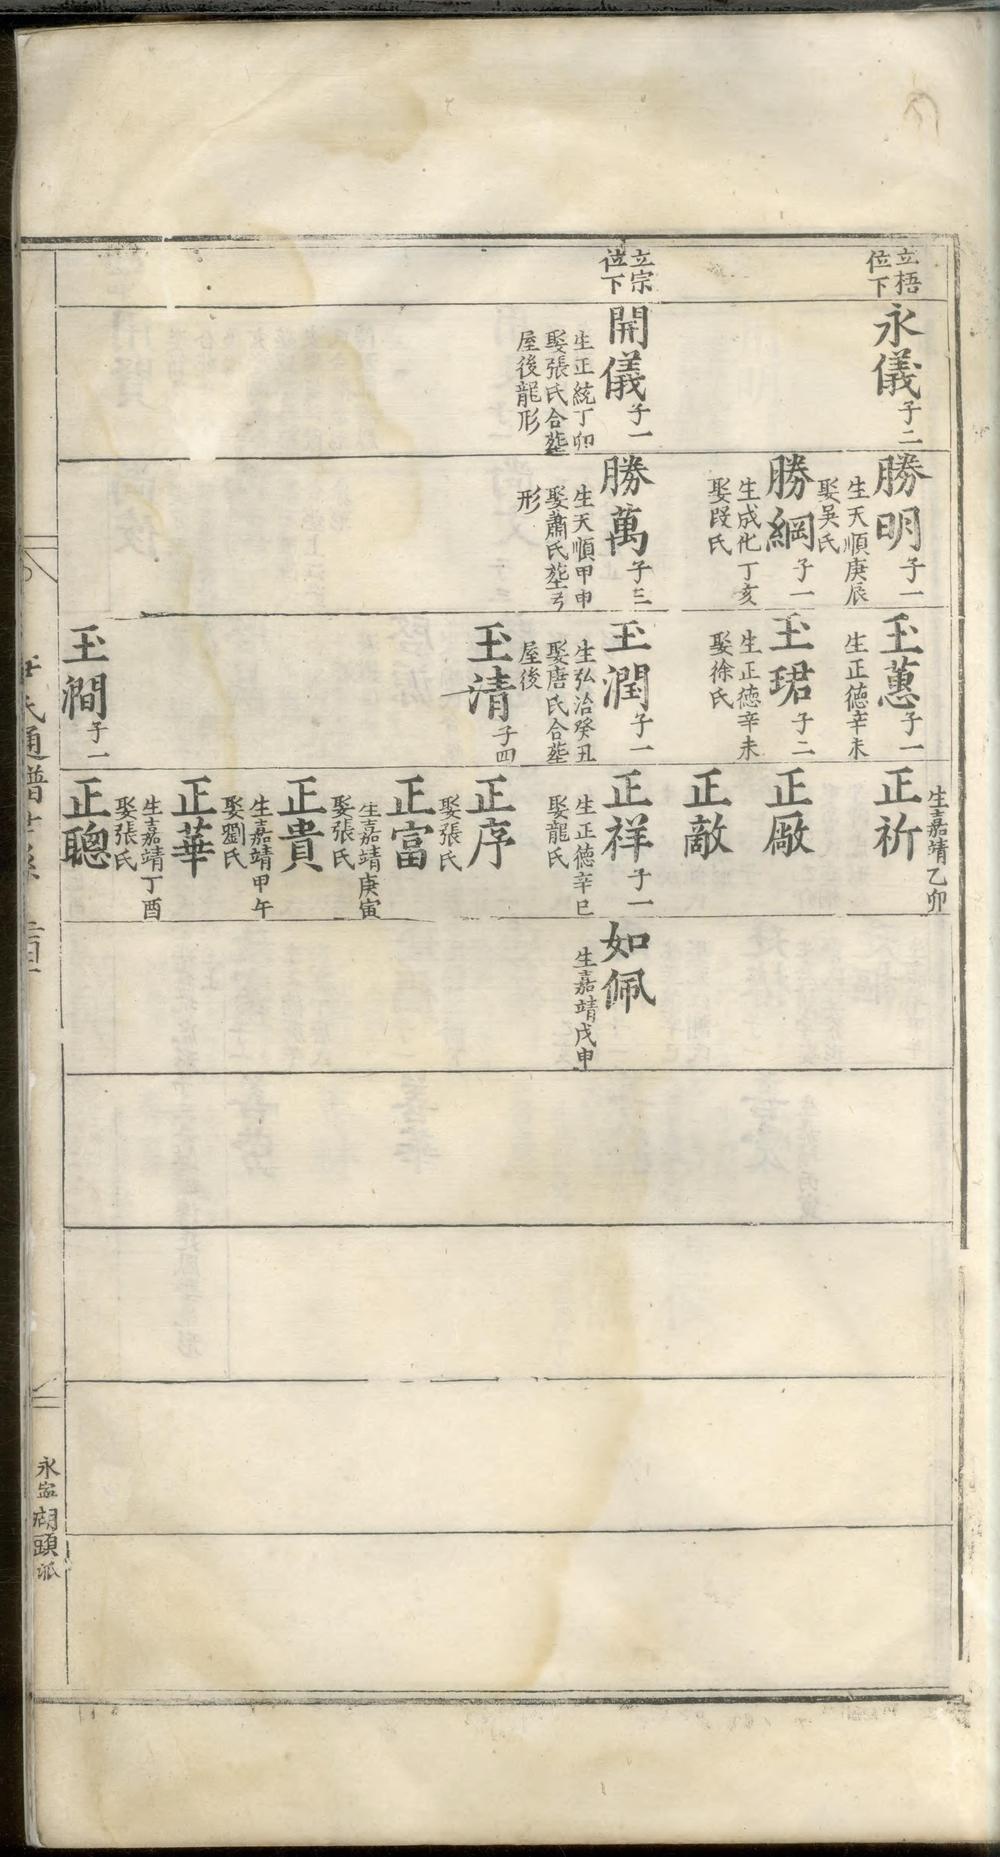 立梧位下
永儀 子二
勝明 子一
生天順庚辰
娶吳氏
玉蕙 子一
生正德辛未
正祈
生嘉靖乙卯
勝綱 子一
生成化丁亥
娶段氏
玉珺 子二
生正德辛未
娶徐氏
正厰
正敵
立宗位下
開儀 子一
生正統丁卯
娶張氏合塟
屋後龍形
勝萬 子三
生天順甲申
娶蕭氏塟弓
形
玉潤 子一
生弘治癸丑
娶唐氏合塟
屋後
正祥 子一
生正德辛巳
娶龍氏
如佩
生嘉靖戊申
玉清 子四
正序
娶張氏
正富
生嘉靖庚寅
娶張氏
正貴
生嘉靖甲午
娶劉氏
正華
生嘉靖丁酉
娶張氏
玉澗 子一
正聰
氏通譜世系
湖頭派